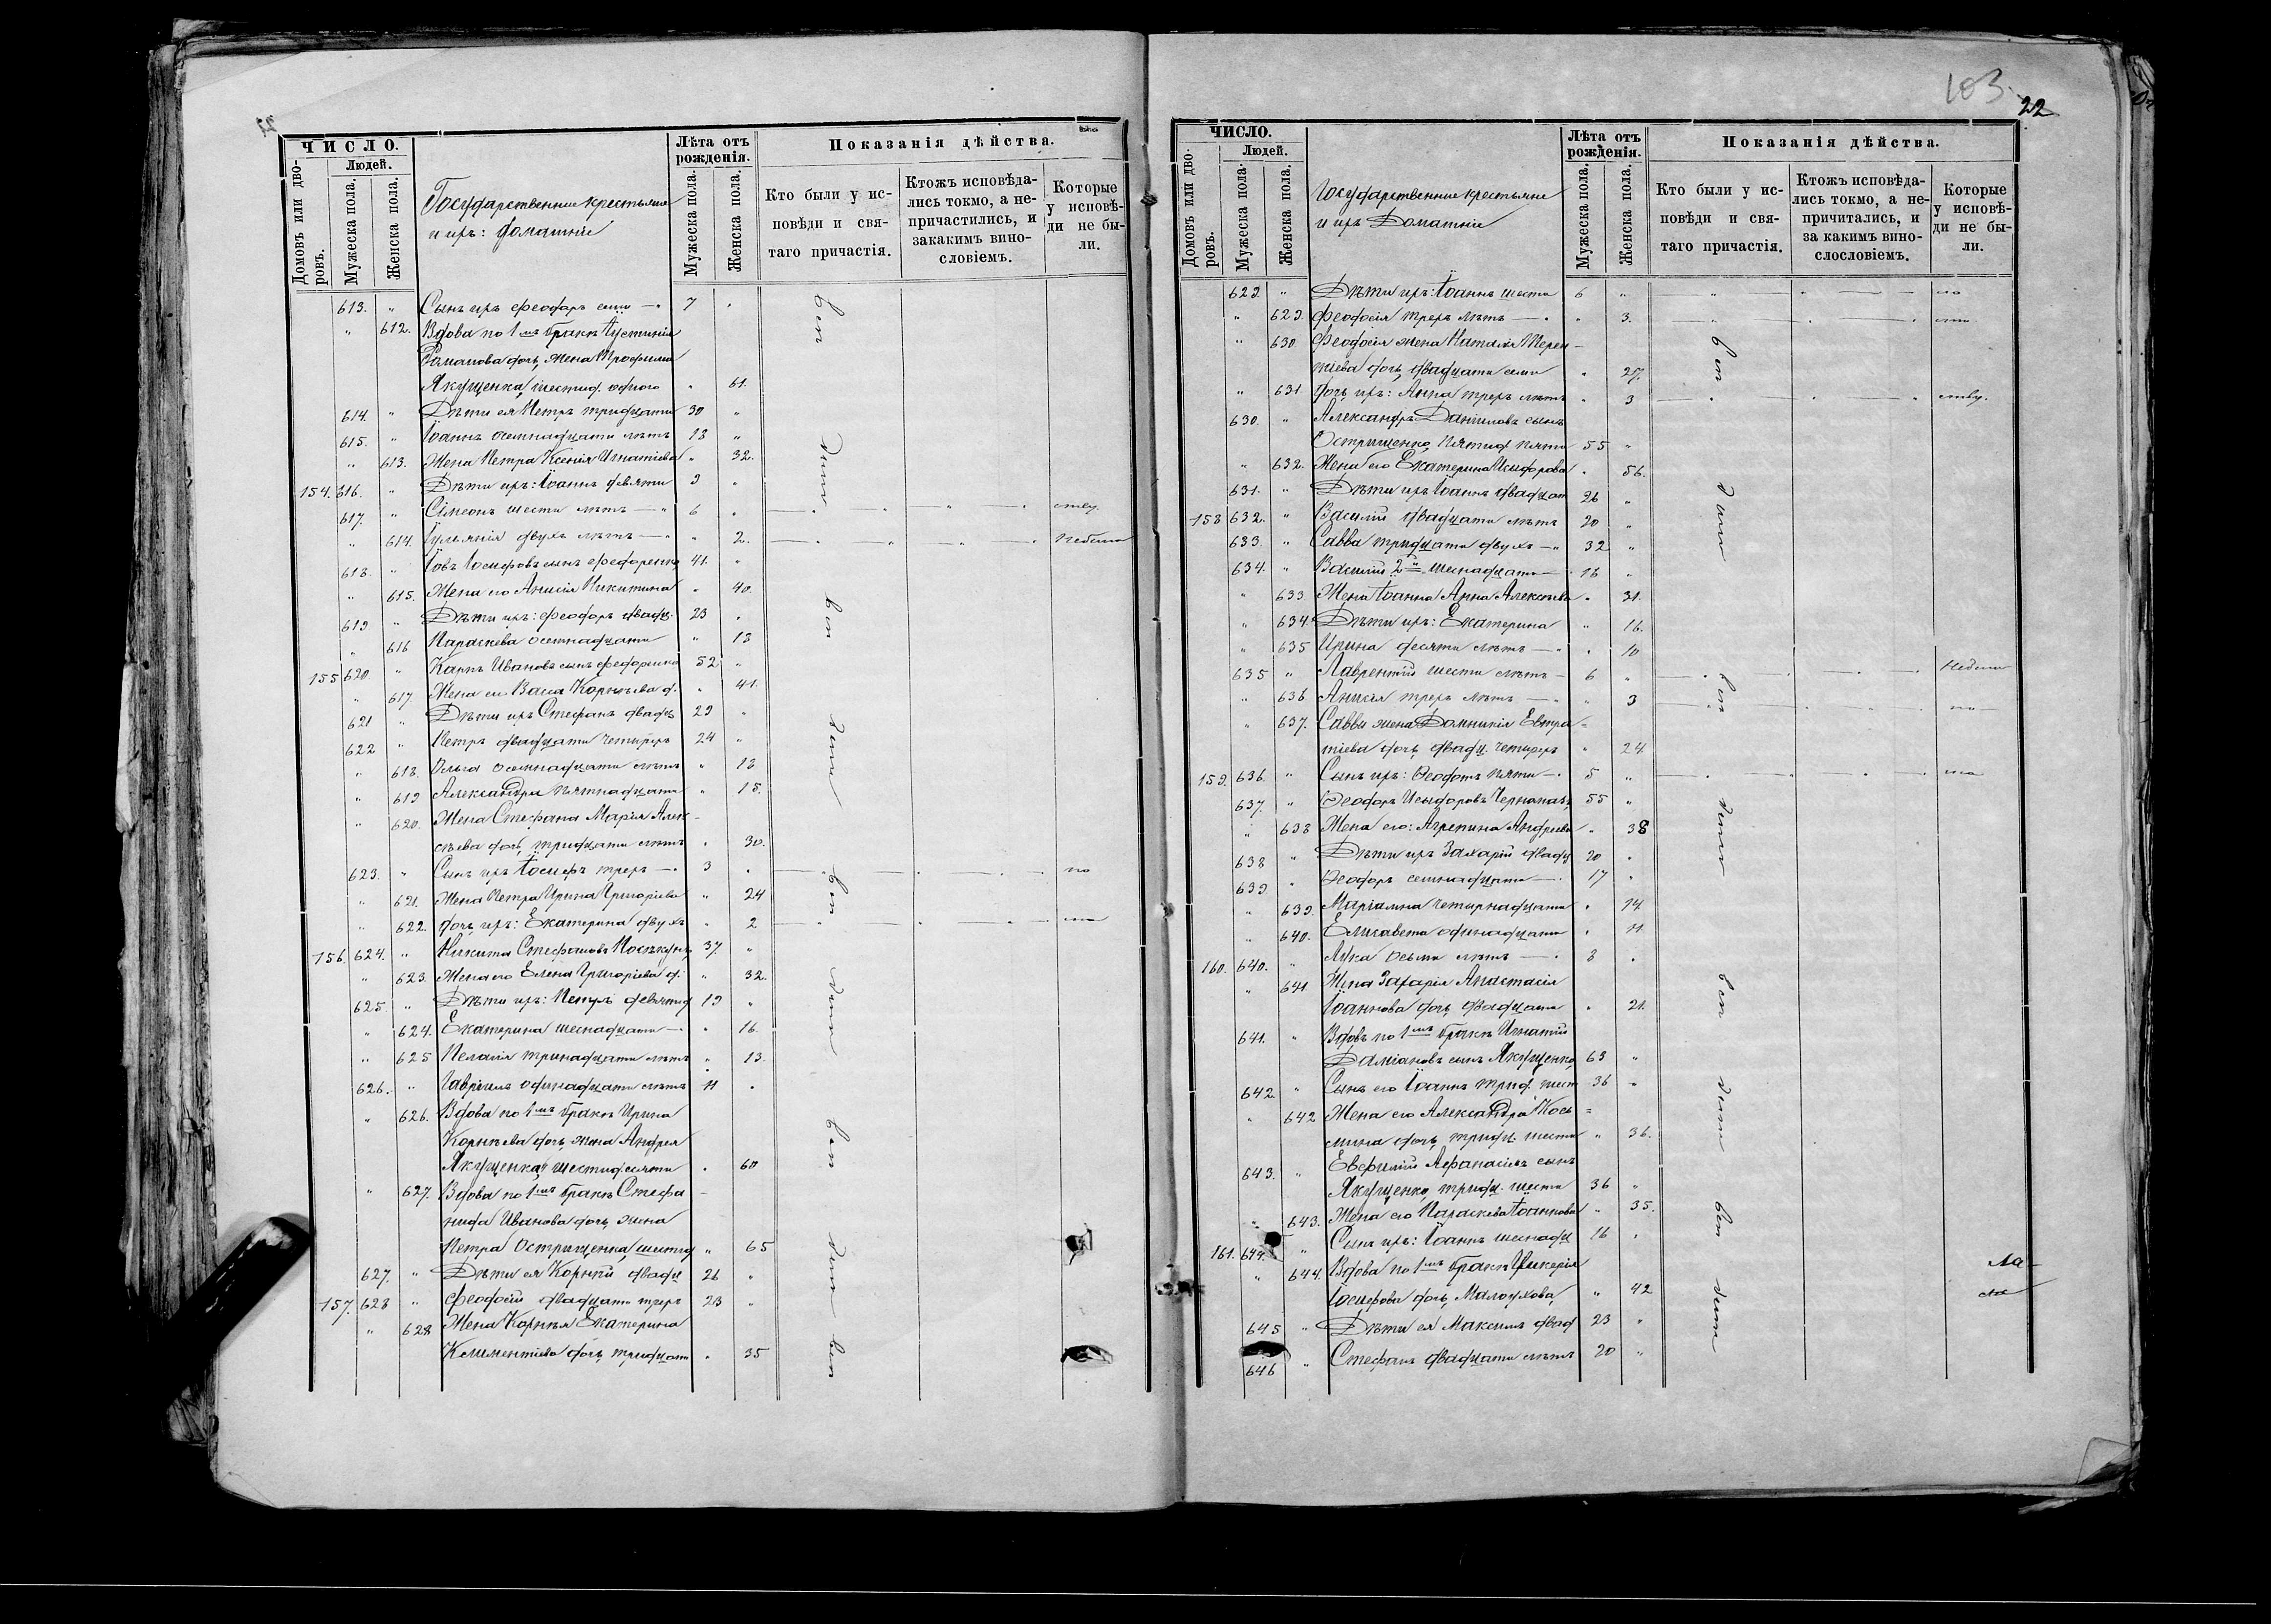 ЧИСЛО.
Домовъ или дворовъ.
Людей.
Мужеска пола.
Женска пола.
Государственные крестьяне
и ихъ: домашніе
Лѣта отъ рожденія.
Мужеска пола.
Женска пола.
Показанія дѣйства.
Кто были у исповѣди и святаго причастія.
Ктожъ исповѣдались токмо, а непричастились, и закакимъ винословіемъ.
Которые у исповѣди не были.
613. " Сынъ ихъ Феодоръ семи — " 7 "
" 612. Вдова по 1мъ бракѣ Іустинія
Романова дочь, жена Трофима
Якущенка, шестид. одного " 61.
614. " Дѣти ея Петръ тридцати 30 "
615. " Іоаннъ осемнадцати лѣтъ 18 "
" 613. Жена Петра Ксенія Игнатіева " 32.
154. 616. " Дѣти ихъ: Іоаннъ девяти 9 "
617. " Сімеонъ шести лѣтъ — " 6 "
" 614. Іуліянія двухъ лѣтъ — " " 2.
618. " Іовъ Іосифовъ сынъ Федоренко 41. "
" 615. Жена его Анисія Никитина " 40.
619 " Дѣти ихъ: Феодоръ двадц. 23 "
" 616 Параскева осемнадцати " 18
155 620 " Карпъ Ивановъ сынъ Федоренко 52 "
" 617. Жена его Васса Корнѣева д. " 41.
621 " Дѣти ихъ Стефанъ двадц 29 "
622 " Петръ двадцати четырехъ 24 "
" 618. Ольга осемнадцати лѣтъ " 18
" 619 Александра пятнадцати " 15.
" 620. Жена Стефана Марія Алек-
сѣева дочь, тридцати лѣтъ " 30.
623. " Сынъ ихъ Іосифъ трехъ — " 3 "
" 621. Жена Петра Ирина Григоріева " 24
" 622. Дочь ихъ: Екатерина двухъ " 2
156. 624. " Никита Стефановъ 37. "
" 623. Жена его Елена Григоріева д: " 32.
625. " Дѣти ихъ: Петръ девятнд 19 "
" 624. Екатерина шеснадцати — " " 16.
" 625 Пелагія тринадцати лѣтъ " 13.
626. " Гавріилъ одинадцати лѣтъ 11 "
" 626. Вдова по 1мъ бракѣ Ирина
Корнѣева дочь, жена Андрея
Якущенка, шестидесяти " 60
" 627. Вдова по 1мъ бракѣ Стефа-
нида Иванова дочь, жена
Петра Острищенка, шестид " 65
627. " Дѣти ея Корній двадц 26 "
157. 628 " Феодосій двадцати трехъ 23 "
" 628 Жена Корнѣя Екатерина
Климентіева дочь, тридцати " 35
103.
22
ЧИСЛО.
Домовъ или дворовъ.
Людей.
Мужеска пола.
Женска пола.
Государственные крестьяне
и ихъ Домашніе
Лѣта отъ рожденія.
Мужеска пола.
Женска пола.
Показанія дѣйства.
Кто были у исповѣди и святаго причастія.
Ктожъ исповѣдались токмо, а непричитались, и за какимъ винослословіемъ.
Которые у исповѣди не были.
629. " Дѣти ихъ: Іоаннъ шести 6 "
" 629. Феодосія трехъ лѣтъ — " " 3.
" 630 Феодосія жена Наталія Терен-
тіева дочь, двадцати семи " 27.
" 631 Дочь ихъ: Анна трехъ лѣтъ " 3
630. " Александръ Даніиловъ сынъ
Острищенко, пятид. пяти 55 "
" 632. Жена его Екатерина Исидорова " 56.
631. " Дѣти ихъ Іоаннъ двадцат 26 "
158 632. " Василій двадцати лѣтъ 20 "
633. " Савва тридцати двухъ — " 32 "
634. " Василій 2й шеснадцати — 16 "
" 633 Жена Іоанна Анна Алексѣева " 31.
" 634 Дѣти ихъ: Екатерина " 16.
" 635 Ирина десяти лѣтъ — " " 10
635 " Лаврентій шести лѣтъ — 6 "
" 636 Анисія трехъ лѣтъ — " " 3
" 637. Саввы жена Домникія Евтра-
тіева дочь, двадц. четырехъ " 24
159. 636. " Сынъ ихъ: Феодотъ пяти — " 5 "
637. " Феодоръ Исидоровъ 55 "
" 638 Жена его: Агрепина Андреева " 38
638 " Дѣти ихъ Захарій двадц 20 "
639 " Феодоръ семнадцати — " 17 "
" 639. Маріамна четырнадцати " 14.
" 640. Елисавета одинадцати " 11
160. 640. " Лука осьми лѣтъ — " 8 "
" 641 Жена Захарія Анастасія
Іоаннова дочь, двадцати " 21.
641. " Вдовъ по 1мъ бракѣ Игнатій
Даміановъ сынъ Якущенко, 63 "
642. " Сынъ его Іоаннъ трид. шест 36 "
" 642 Жена его Александра Кось-
мина дочь, тридц. шести " 36.
643. " Евфимій Афанасіевъ сынъ
Якущенко, тридц. шести 36 "
" 643. Жена его Параскева Іоаннова " 35.
161. 644. " Сынъ ихъ: Іоаннъ шеснадц 16 "
" 644. Вдова по 1мъ бракѣ Гликерія
Іосифова дочь, Малоухова, " 42
645 " Дѣти ея Максимъ двад 23 "
646 " Стефанъ двадцати лѣтъ 20 "